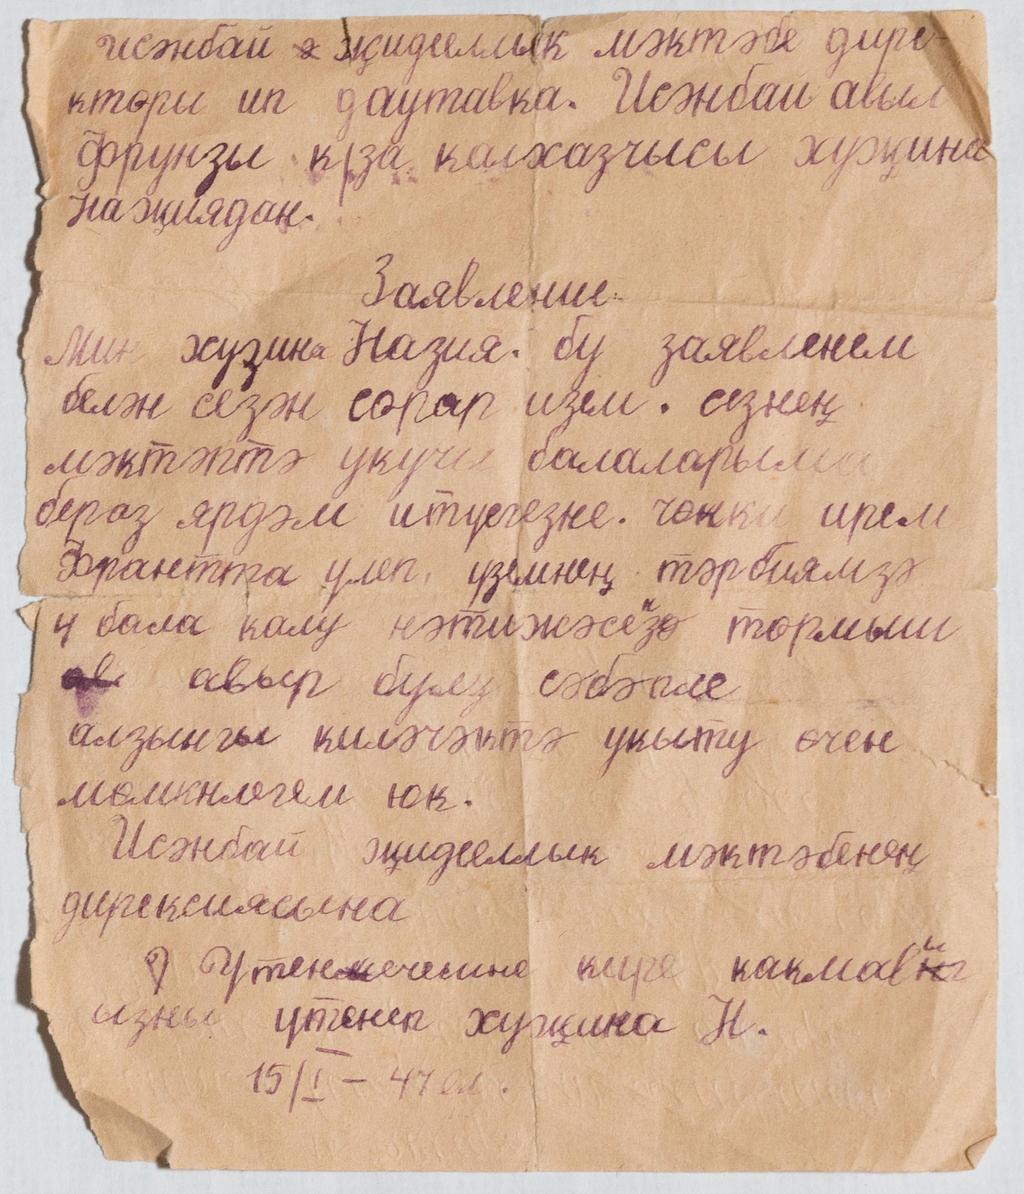 Исәнбай җидееллык мәктәбе дире-
кторы ип даутавка. Исәнбай авыл
Фрунзы к/за калхазчысы хуҗина
Наҗиядан.
Заявление
Мин хузина Назия. бу заявленем
белән сезән сорар изем. сезнең
мәктәптә укучы балаларыма
бераз ярдәм итуегезне. чөнки ирем
Франтта улеп, уземнең тәрбиямзә
4 бала калу нәтижәсензә тормыш
авыр булу сәбәпле
алзынгы киләчәктә укыту өчен
мөмкнлегем юк.
Исәнбай җидееллык мәктәбенең
дирексиясына
Утенечемне кире какмавы
ызны утенеп хуҗина Н.
15/I – 47 ел.